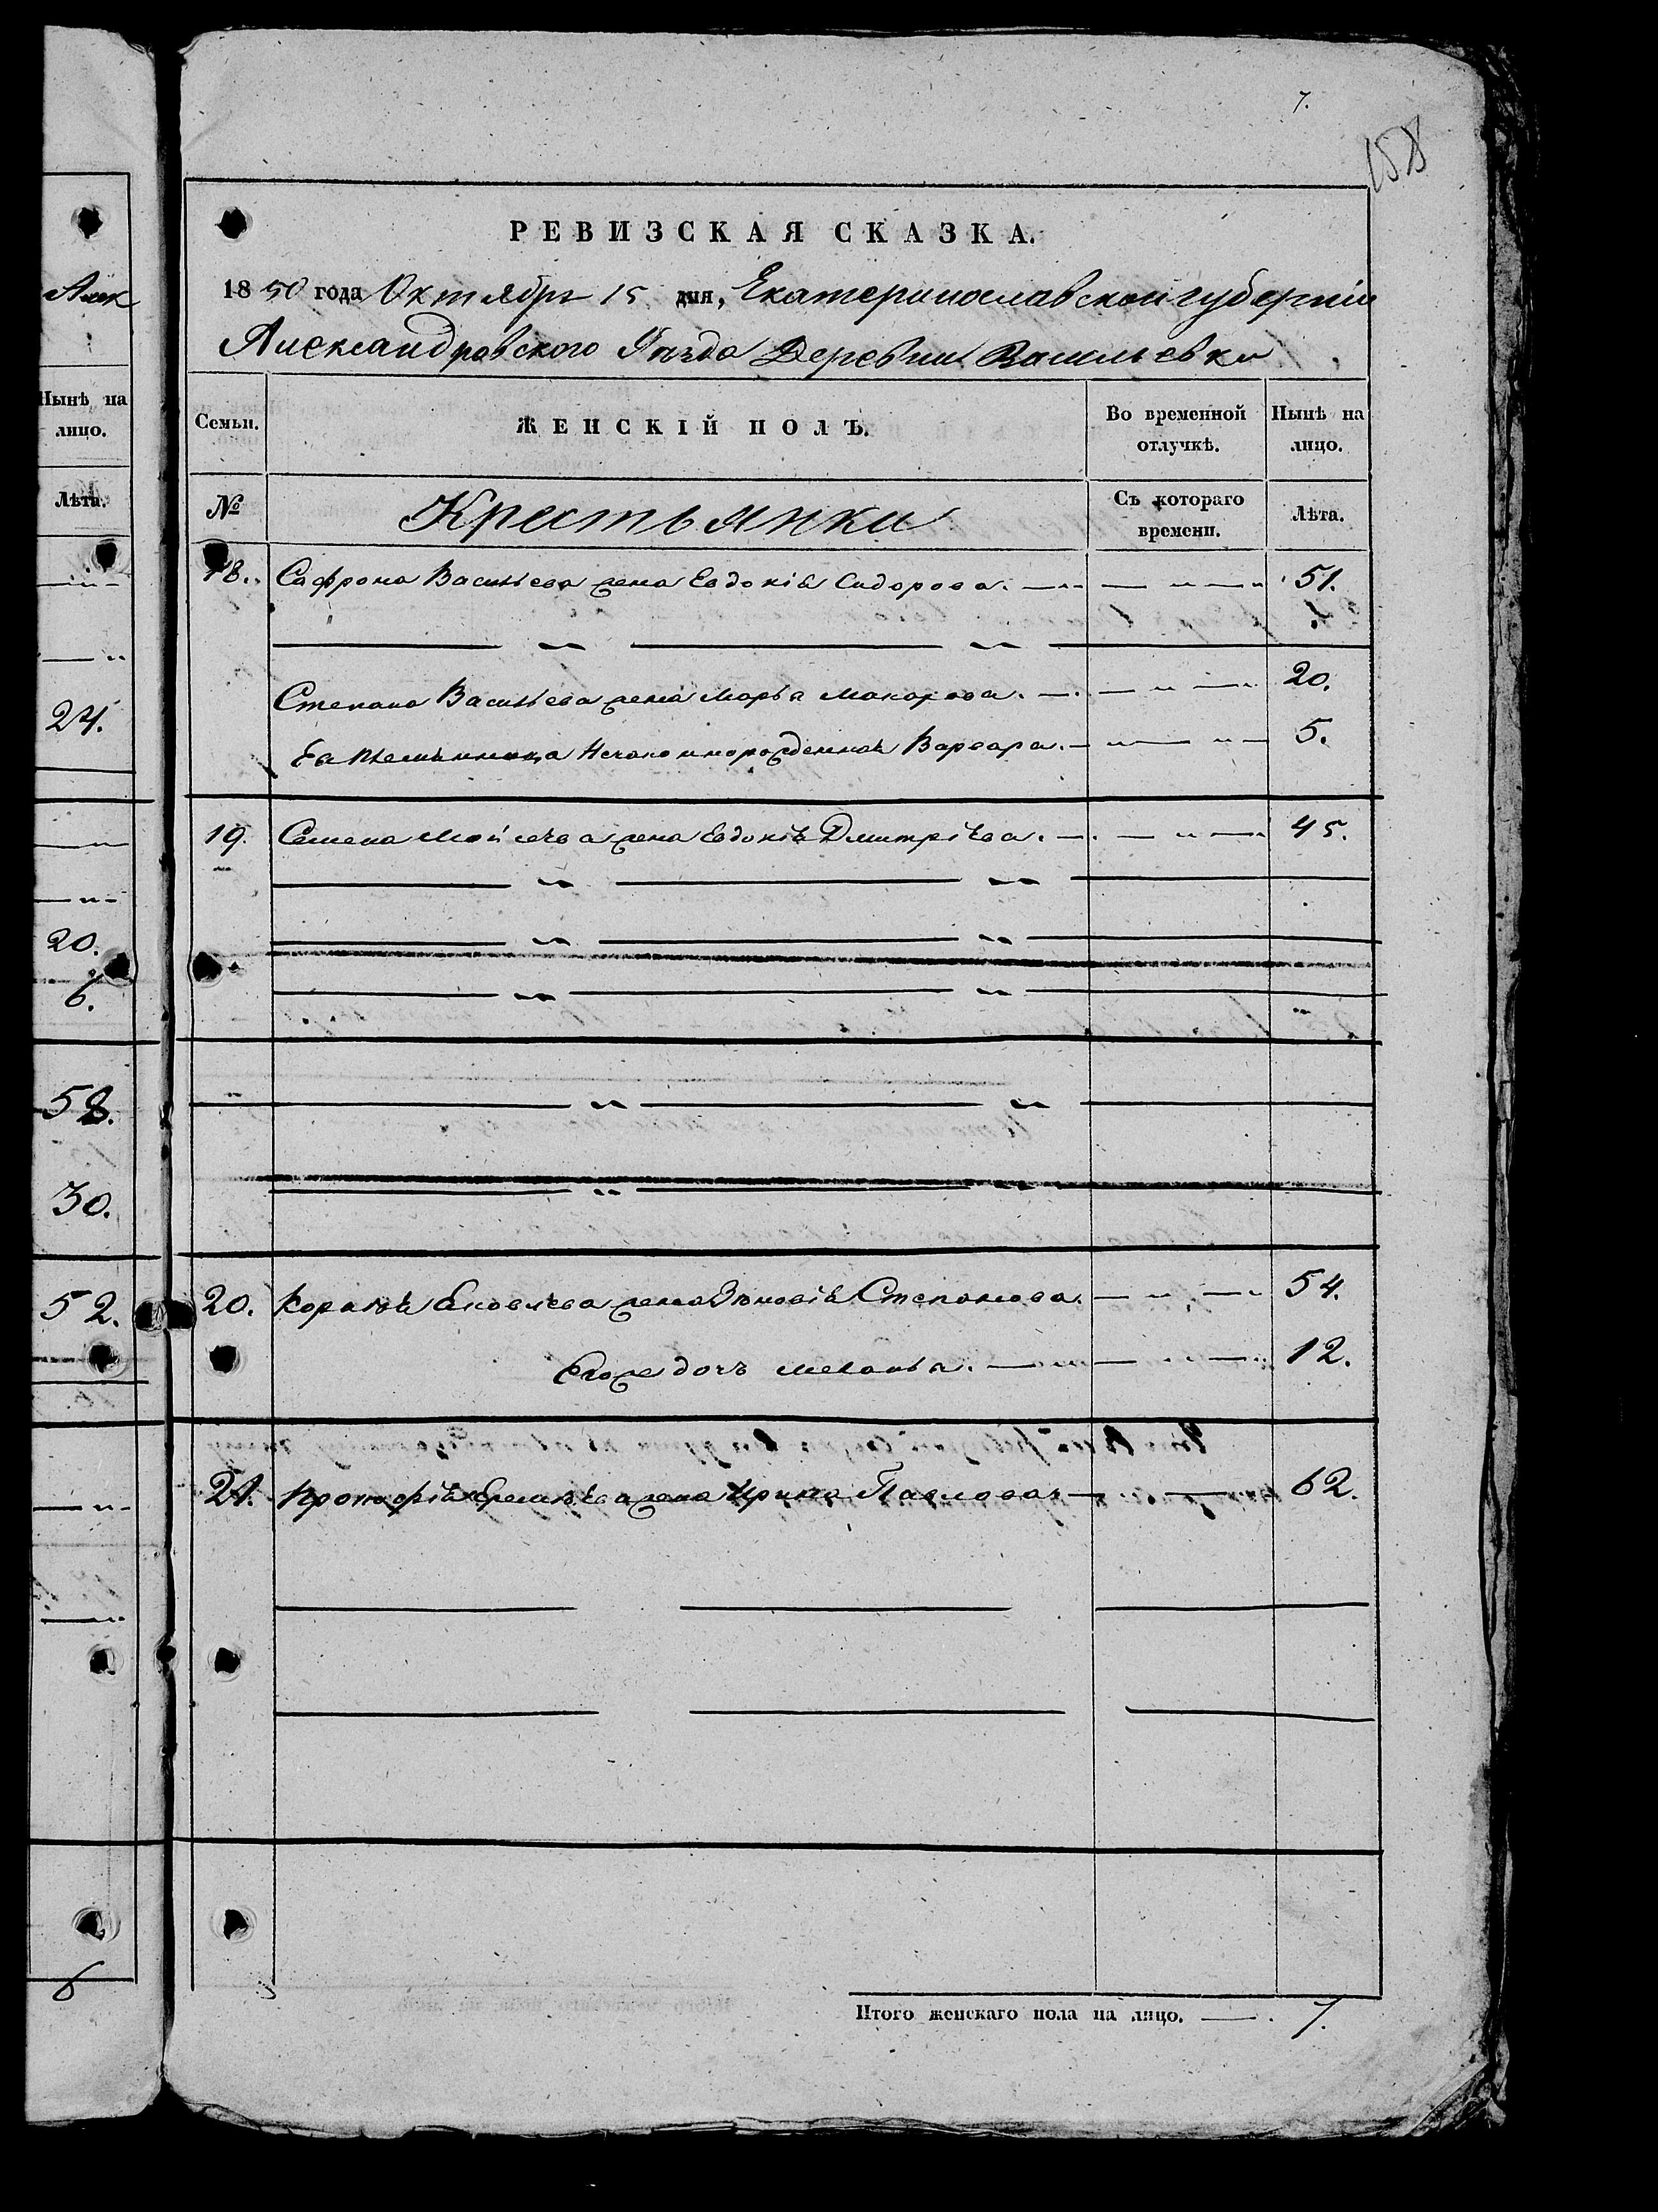 7.
158
Алек
РЕВИЗСКАЯ СКАЗКА.
1850 года Октября 15 дня, Екатеринославской губерніи
Александровского Уѣзда Деревни Васильевки
Нынѣ на лицо.
Лѣта.
Семьи.
ЖЕНСКІЙ ПОЛЪ.
Во временной отлучкѣ.
Нынѣ на лицо.
№
Крестьянки
Съ котораго времени.
Лѣта.
18. Сафрона Васильева жена Евдокія Сидорова. 51.
Степана Васильева жена Марья Макарова. 20.
24.
Ея племянница незаконнорожденная Варвара. 5.
19. Семена Мойсеева жена Евдокія Дмитріева. 45.
20.
6.
58.
30.
52.
20. Яковлева жена Зѣновія Степанова. 54.
Егоже дочь Меланья. 12.
21. Прокофія жена Ирина Павлова 62.
6
Итого женскаго пола на лицо. 7.